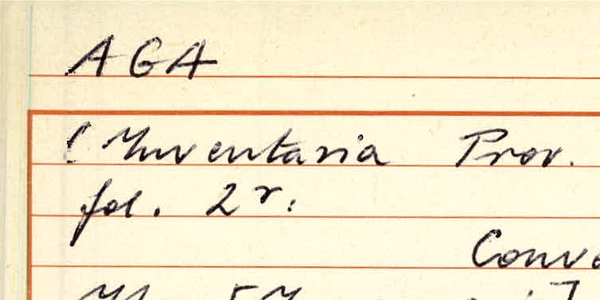 AGA
(Inventaria Prov.
fol. 2r: